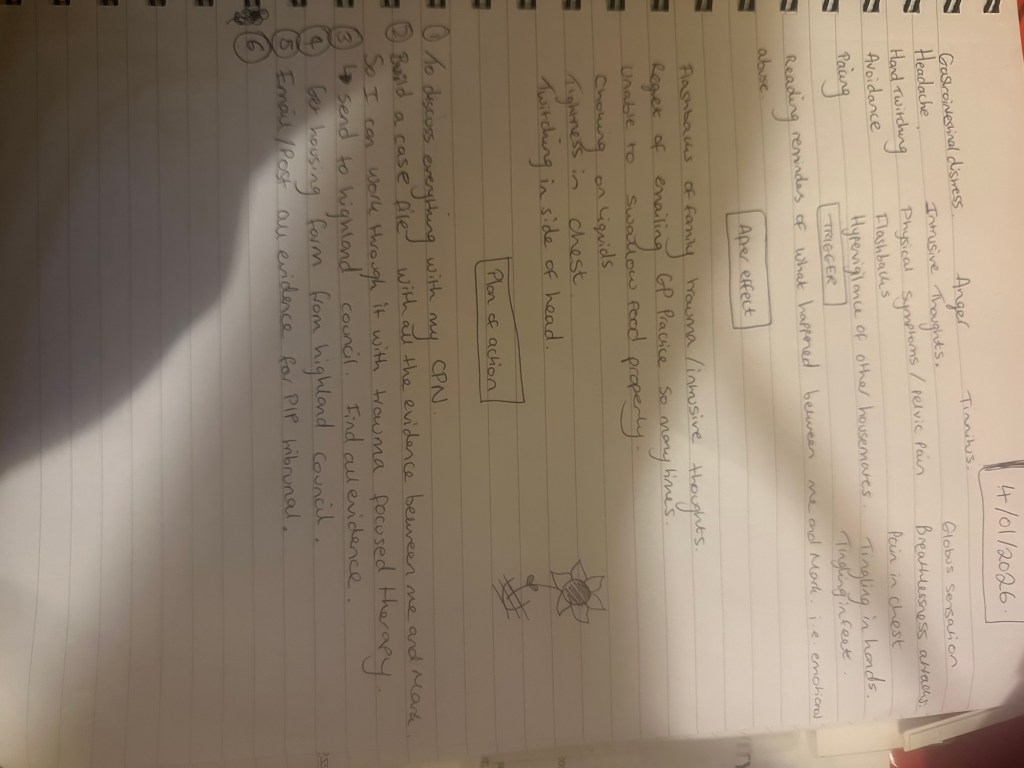 4/01/2026.
Anger Tinnitus.
Gastrointestinal distress Globus sensation
Headache. Intrusive Thoughts. Breathlessness attacks.
Hand Twitching Physical Symptoms / pelvic pain Pain in chest
Avoidance Flashbacks Tingling in hands.
Pacing Hypervigilance of other housemates. Tingling in feet.
TRIGGER
Reading reminders of what happened between me and Mark. i.e emotional
abuse.
After effect
Flashbacks of family trauma / intrusive thoughts.
Regret of emailing GP Practice so many times.
Unable to swallow food properly.
Choking on liquids
Tightness in chest.
Twitching in side of head.
Plan of action
① To discuss everything with my CPN.
② Build a case file with all the evidence between me and Mark
So I can work through it with trauma focused therapy.
③ ↳ send to highland council. Find all evidence.
④ Get housing form from highland council.
⑤ Email/Post all evidence for PIP tribunal.
⑥